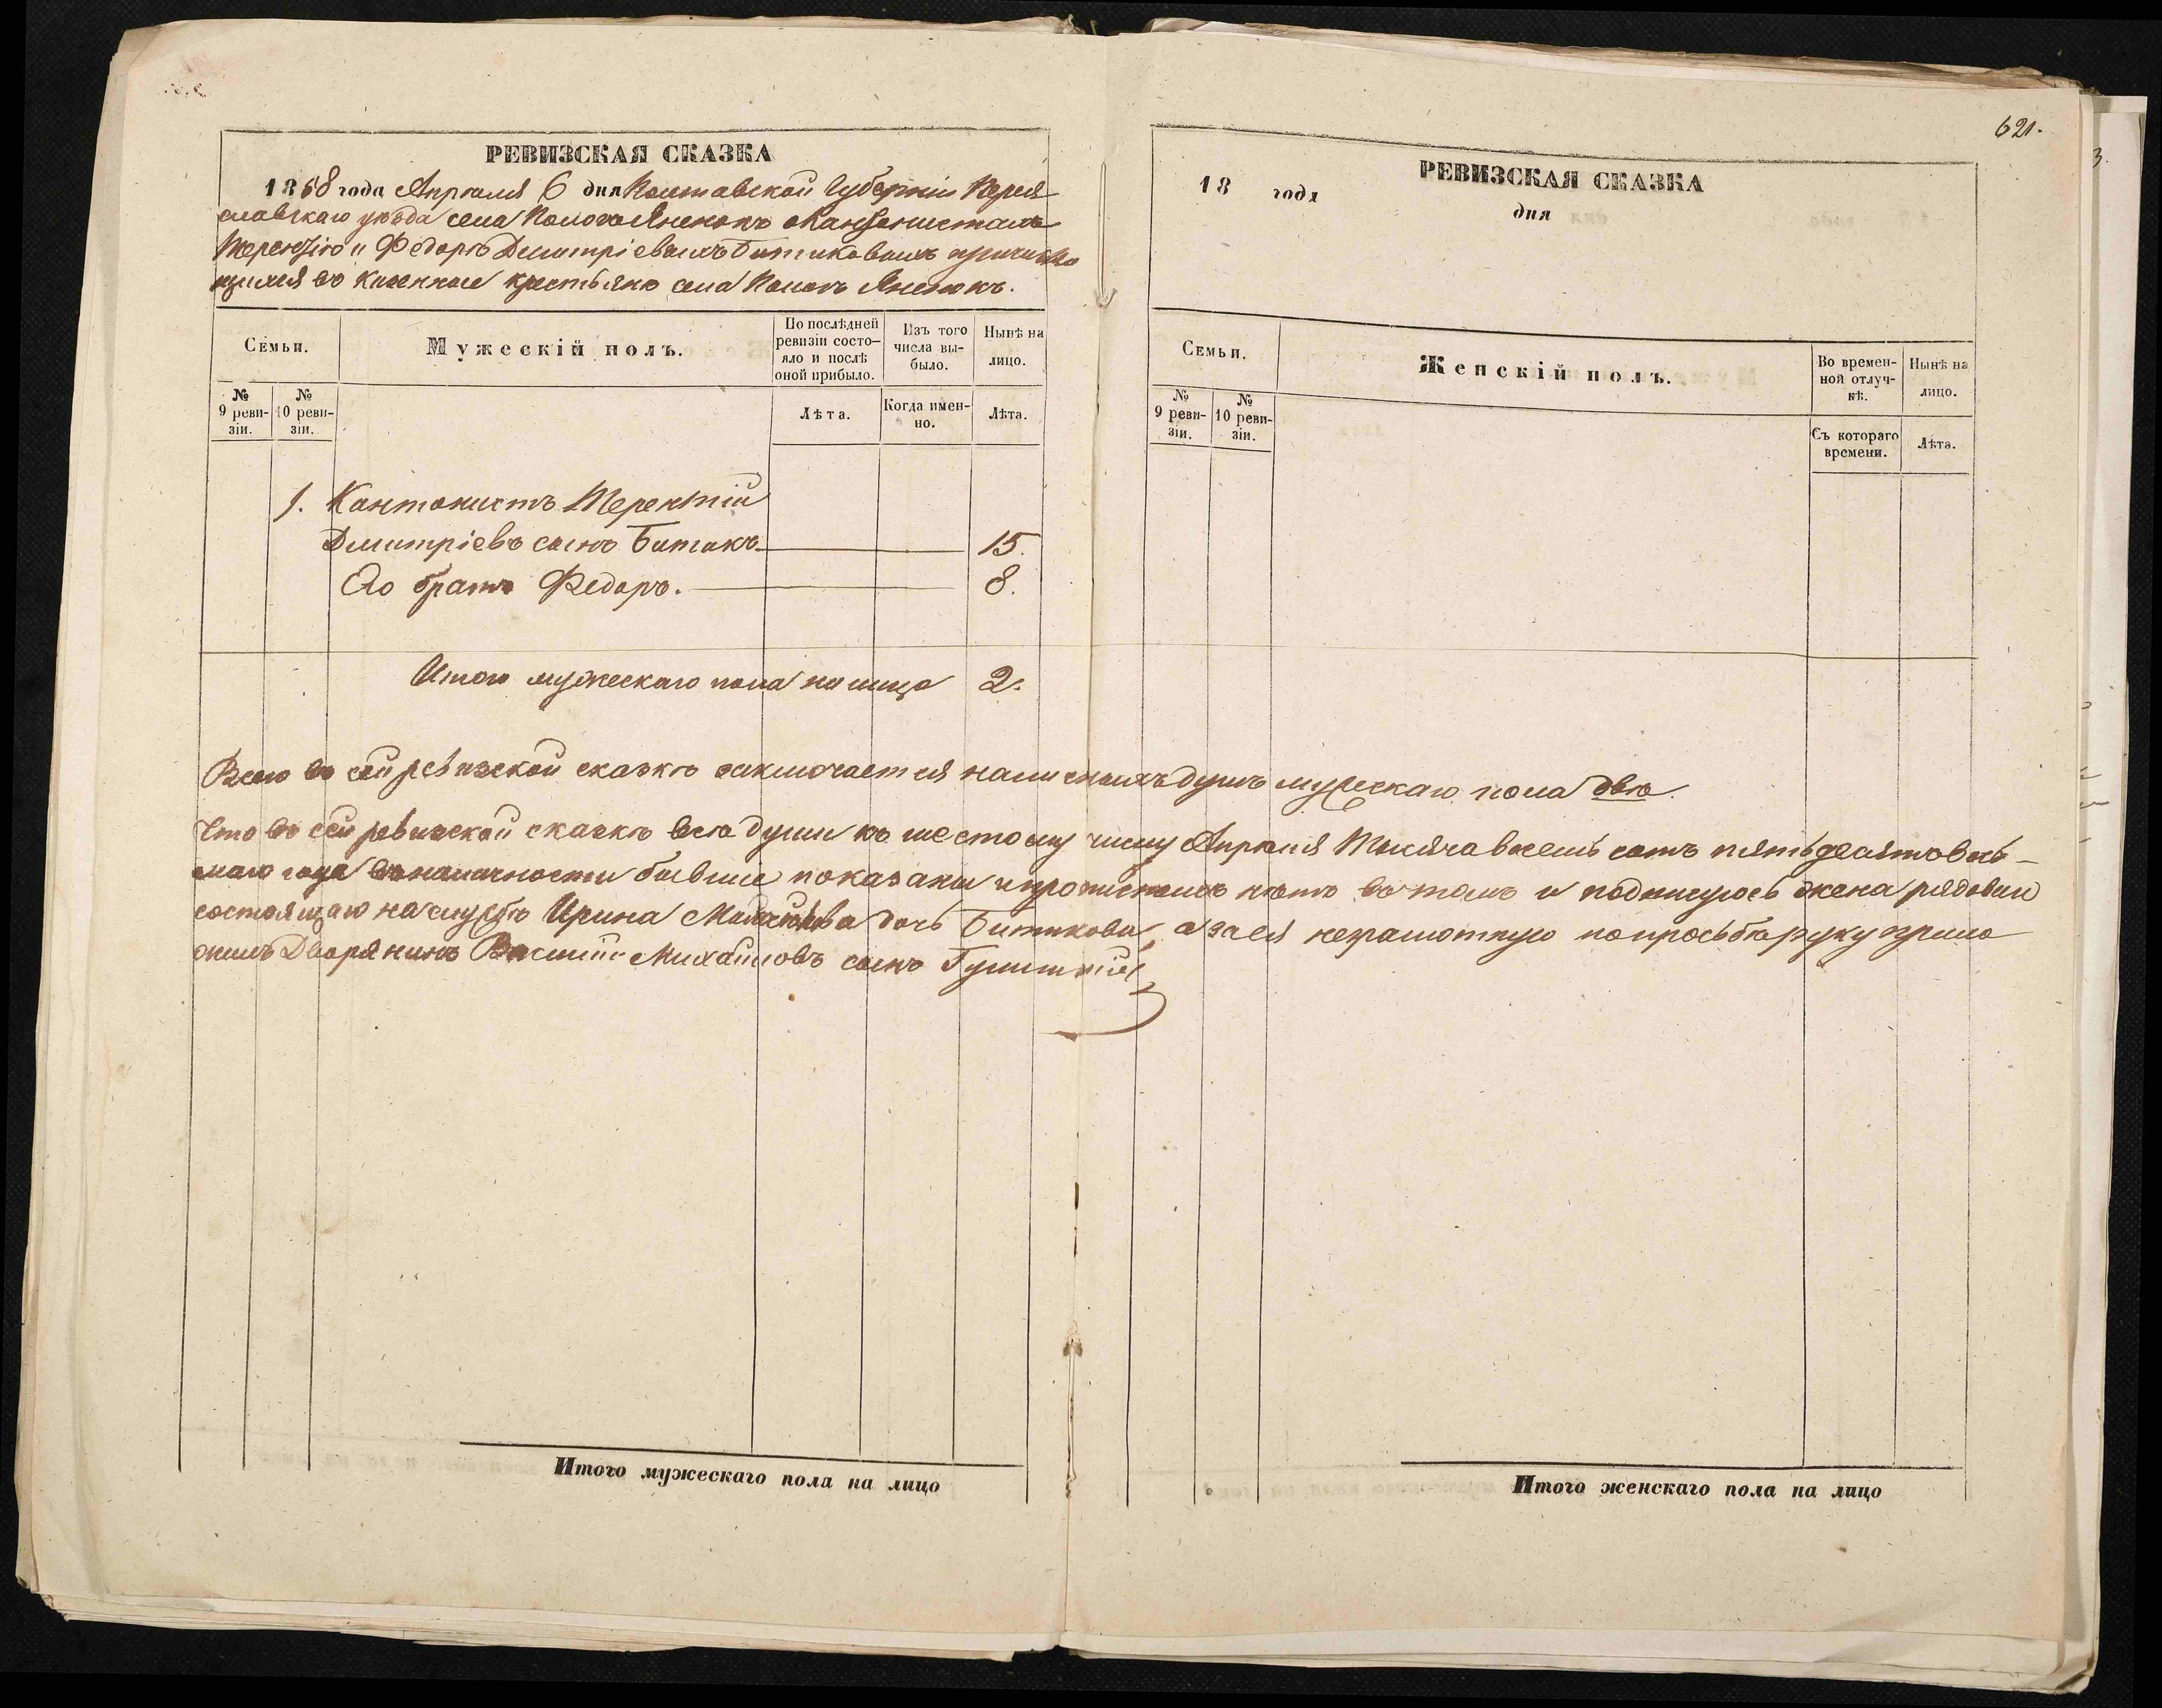 621.
РЕВИЗСКАЯ СКАЗКА
1858 года Апрѣля 6 дня Полтавской Губерніи Перея-
славскаго уѣзда села Пологъ Яненокъ о Кантонистахъ
Терентію и Федорѣ Дмитріевыхъ Битиковыхъ
въ казенные крестьяне села Пологъ Яненокъ.
Семьи.
Мужескій полъ.
По послѣдней ревизіи состо-яло и послѣ оной прибыло.
Изъ того числа вы-было.
Нынѣ на лицо.
№ 9 реви-зіи.
№ 10 реви-зіи.
Лѣта.
Когда имен-но.
Лѣта.
1. Кантонистъ Терентій
Дмитріевъ сынъ Битикъ 15.
Его братъ Федоръ. 8.
Итого мужескаго пола на лицо 2.
Всего въ сей ревизской сказкѣ заключается наличныхъ душъ мужескаго пола двѣ.
Что въ сей ревизской сказкѣ всѣ души къ шестому числу Апрѣля Тысяча восемь сотъ пятьдесятъ вось-
маго года въ наличности бывшіе показаны и прописныхъ нѣтъ въ томъ и подпишусь жена рядоваго
состоящаго на службѣ Ирина дочь Битикова, а за ея неграмотную по просьбѣ руку прило
жилъ Дворянинъ Василій Михайловъ сынъ
Итого мужескаго пола на лицо
РЕВИЗСКАЯ СКАЗКА
18 года
дня
Семьи.
Женскій полъ.
Во времен-ной отлуч-кѣ.
Нынѣ на лицо.
№ 9 реви-зіи.
№ 10 реви-зіи.
Съ котораго времени.
Лѣта.
Итого женскаго пола на лицо
3.